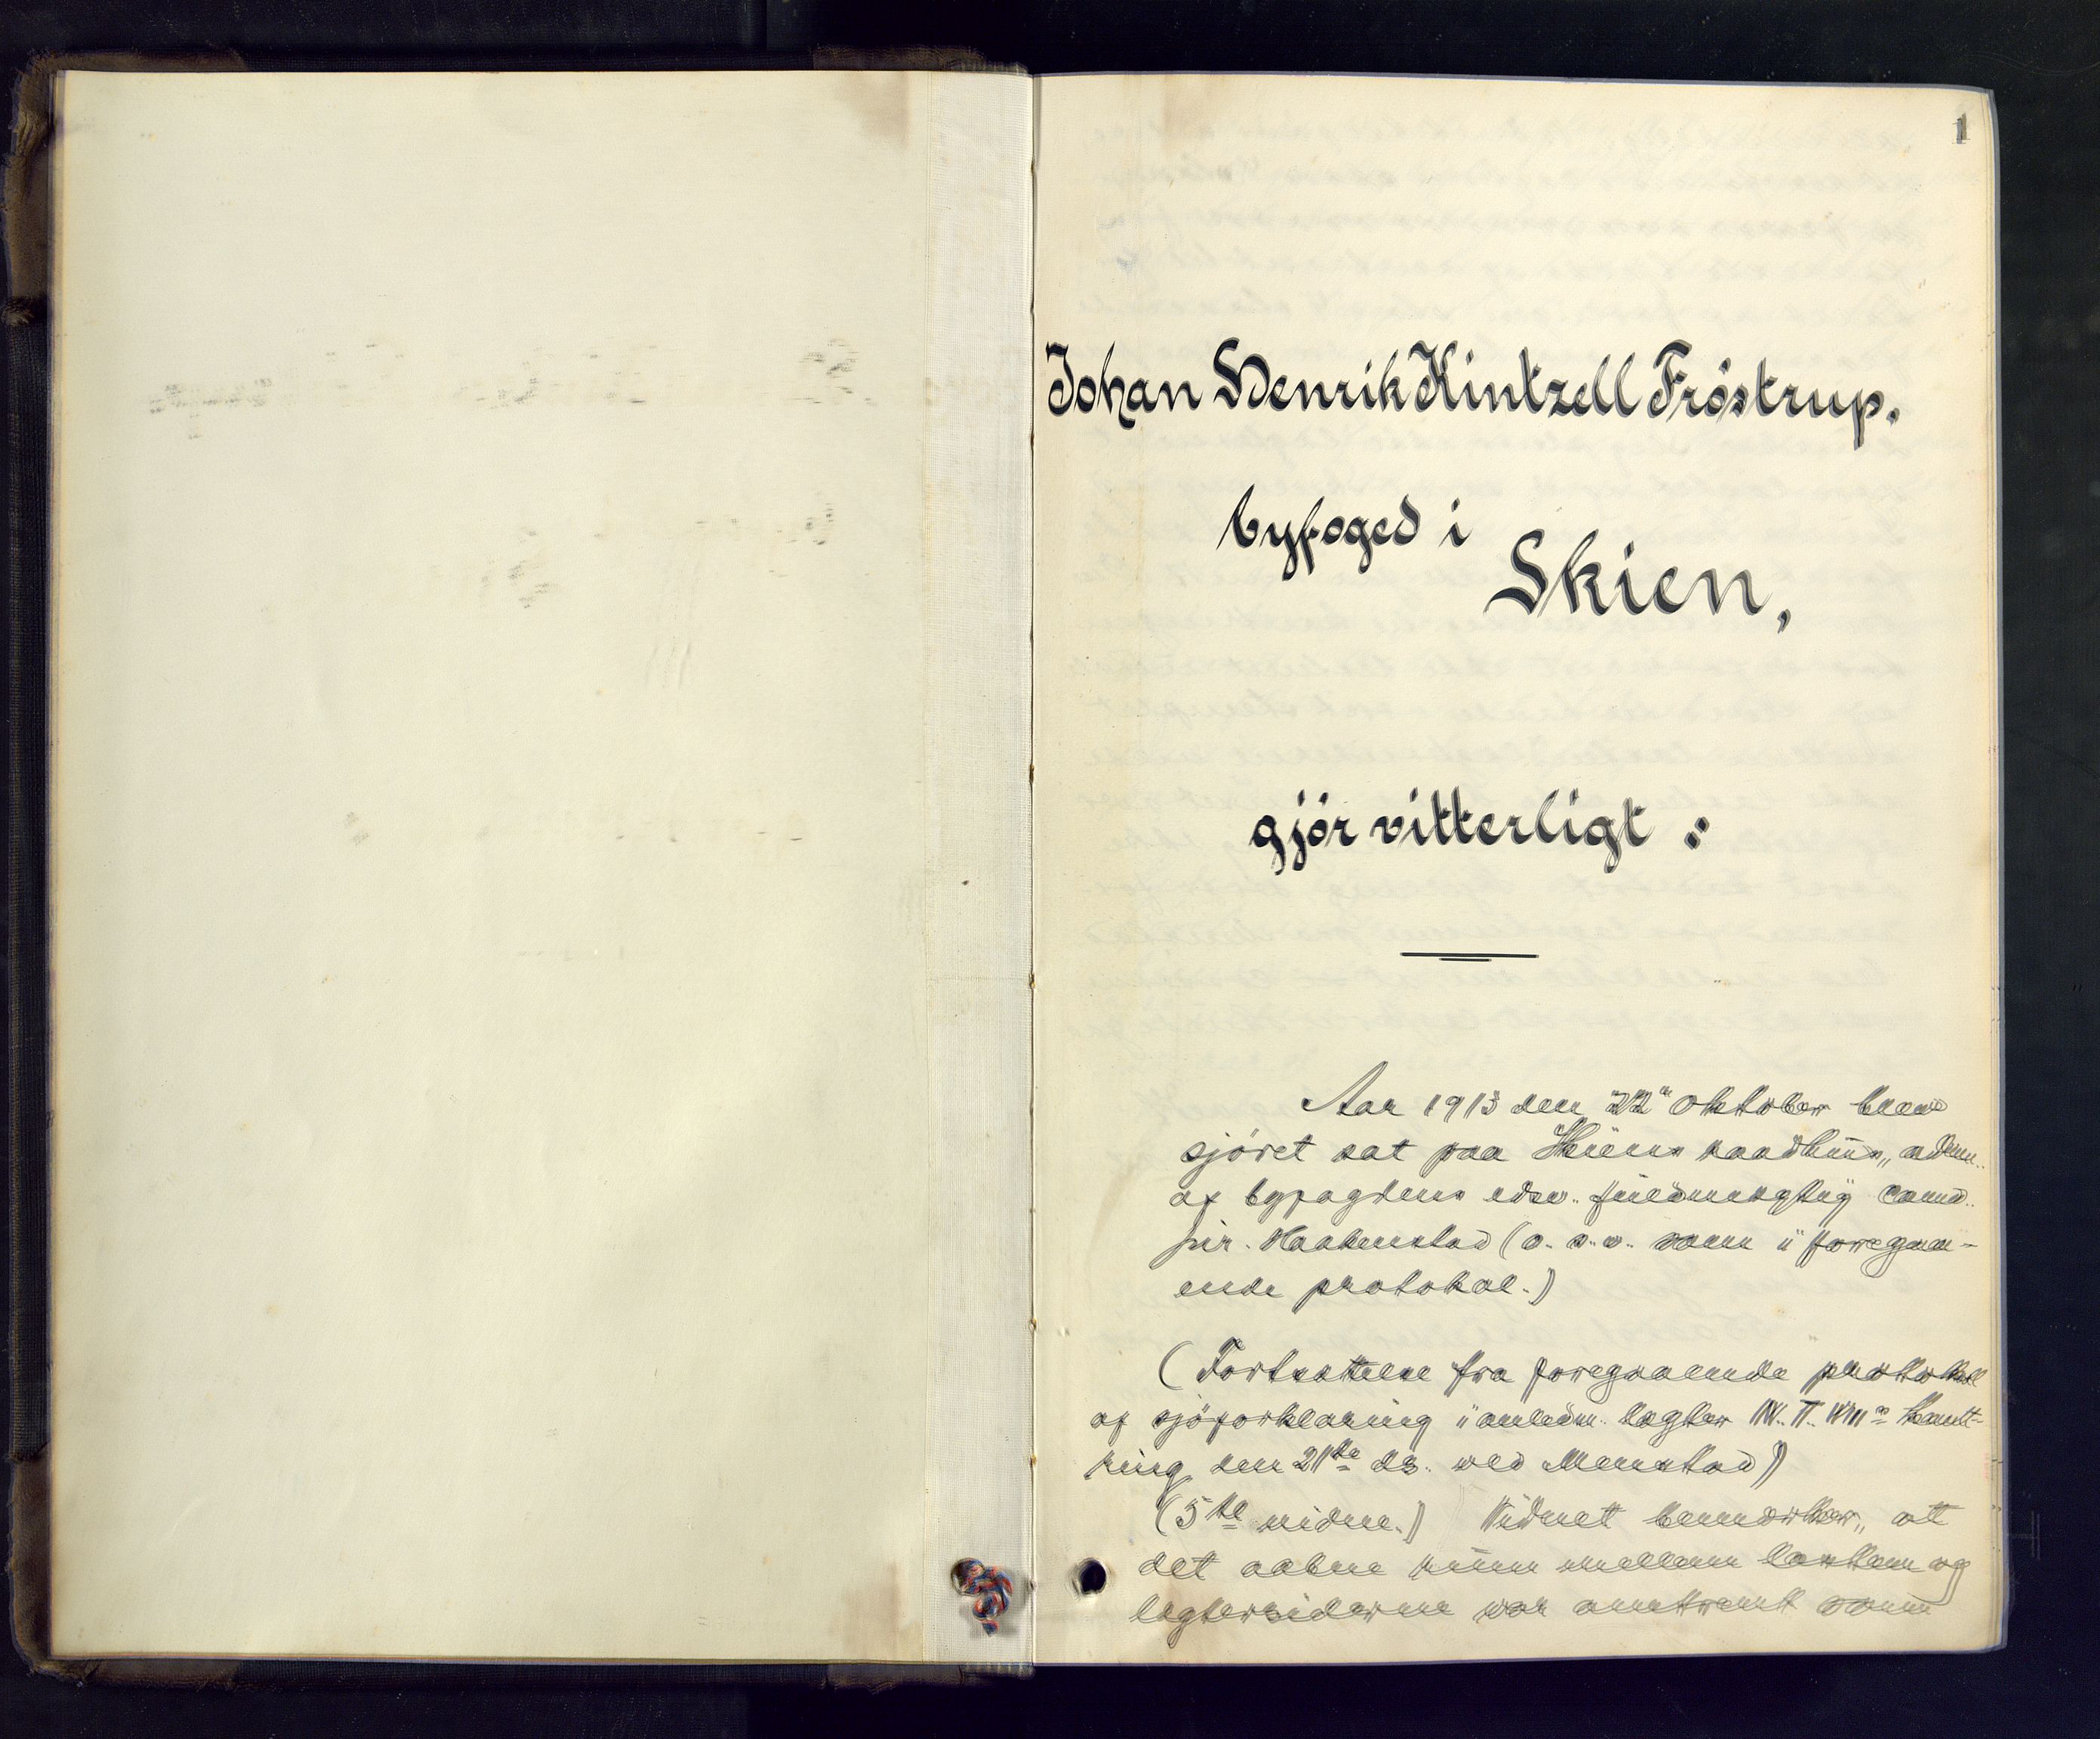 1
Johan Henrik Kintzell Fröstrup.
byfoged i
Skien,
gjör vitterligt :
Aar 1913 den 22 oktober blev
sjöret sat paa Skiens raadhus, adm.
af byfogdens edsv. fuldmægtig cand.
jur. Haakenstad (o. s. v. som i foregaa-
ende protokol.)
(Fortsættelse fra foregaaende protokol
af sjöforklaring i anledn. lægter kant-
ring den 21de ds. ved Menstad)
(5te vidne.) Vidnet bemærker, at
det aabne rum mellem lasten og
lægtersiderne var omtrent som